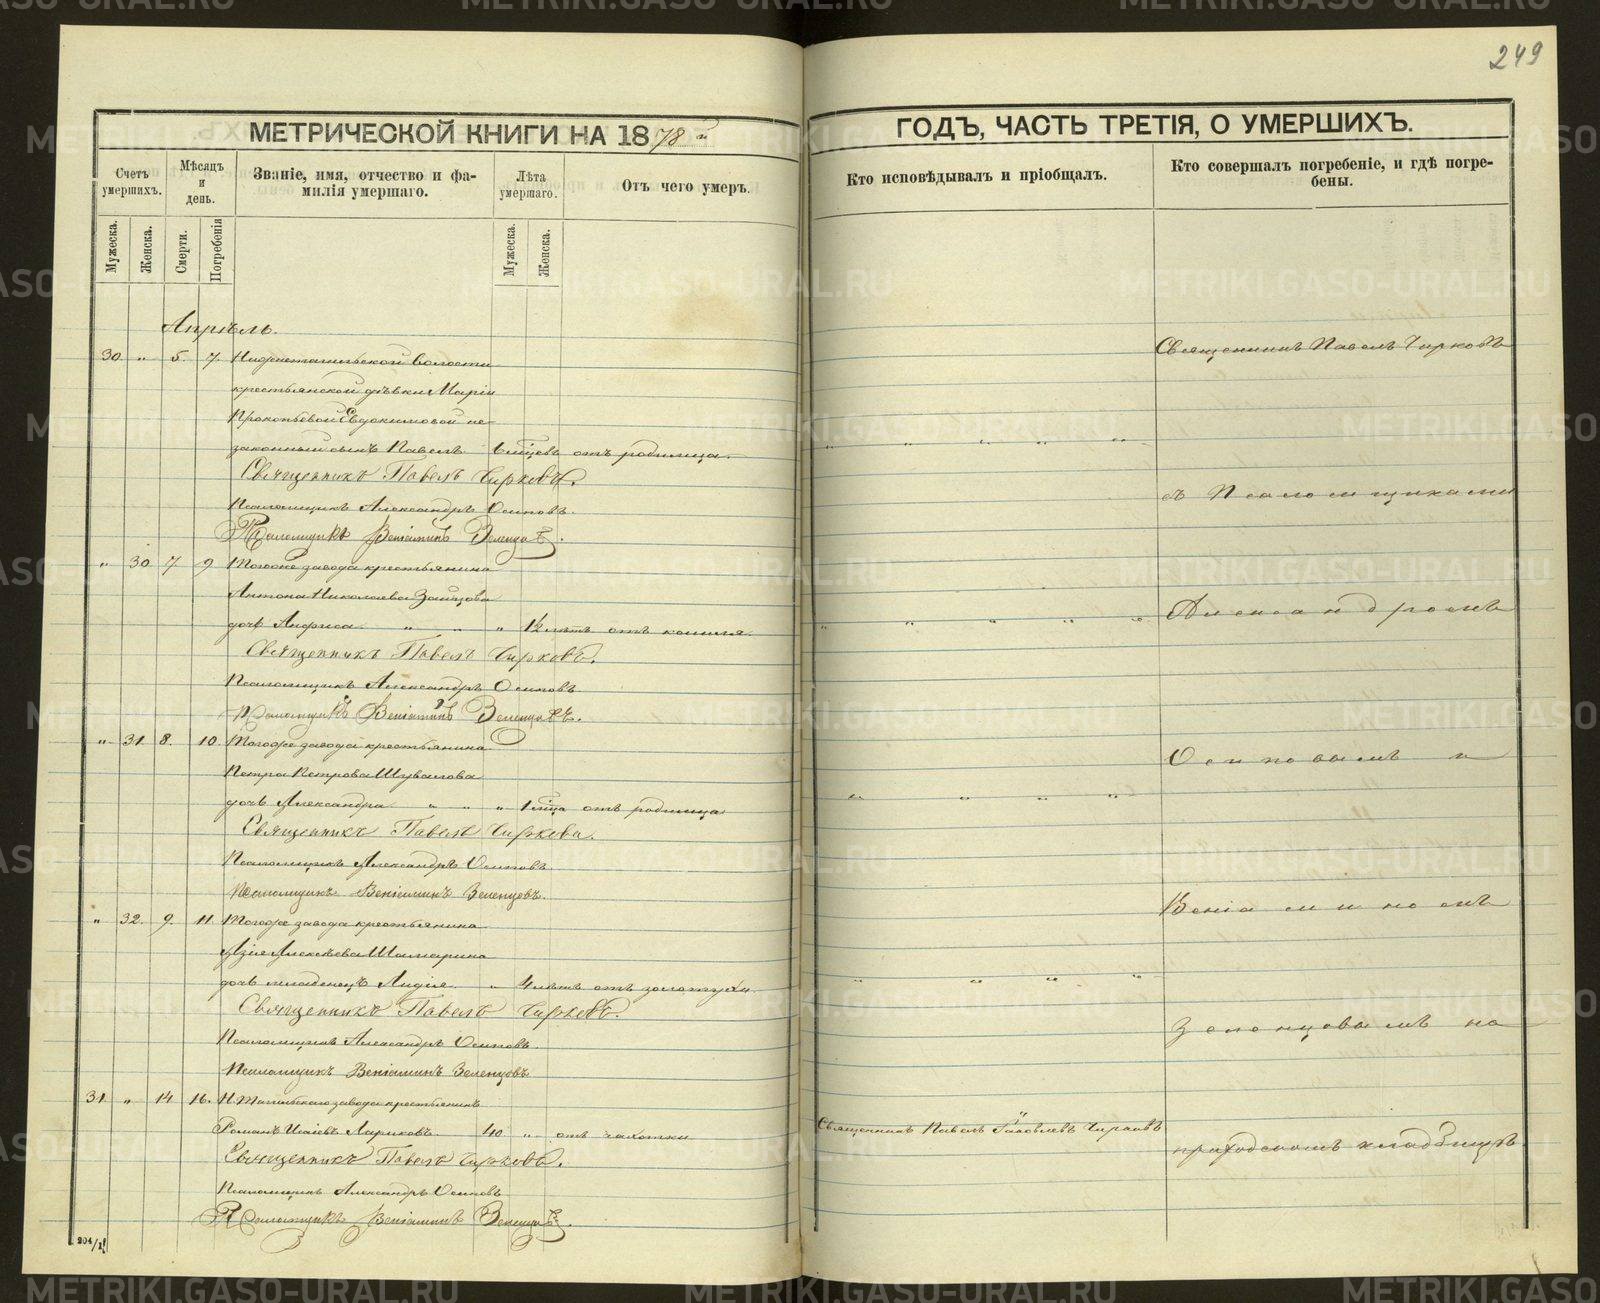 249
МЕТРИЧЕСКОЙ КНИГИ НА 1878й
ГОДЪ, ЧАСТЬ ТРЕТІЯ, О УМЕРШИХЪ.
Счетъ умершихъ.
Мѣсяцъ и день.
Званіе, имя, отчество и фамилія умершаго.
Лѣта умершаго.
Отъ чего умеръ.
Кто исповѣдывалъ и пріобщалъ.
Кто совершалъ погребеніе, и гдѣ погребены.
Мужеска.
Женска.
Смерти.
Погребенія
Мужеска.
Женска.
Апрѣль.
30. " 5. 7. Нижнетагильской волости
крестьянской дѣвки Маріи
Прокопьевой Евдокимовой не-
законный сынъ Павелъ 6 мѣсцевъ отъ родимца.
Священникъ Павелъ Чирковъ.
Псаломщикъ Александръ Осиповъ.
Псаломщикъ Веніаминъ Зеленцовъ.
" 30 7. 9 Тогоже завода крестьянина
Антона Николаева Зайцова
дочь Анфиса " " " 1½ лѣтъ отъ кашля.
Священникъ Павелъ Чирковъ.
Псаломщикъ Александръ Осиповъ.
Псаломщикъ Веніаминъ Зеленцовъ.
" 31. 8. 10. Тогоже завода крестьянина
Петра Петрова Шувалова
дочь Александра " " " 1 мѣца отъ родимца
Священникъ Павелъ Чирковъ.
Псаломщикъ Александръ Осиповъ.
Псаломщикъ Веніаминъ Зеленцовъ.
" 32. 9. 11. Тогоже завода крестьянина
Алексѣева Шамарина
дочь младенецъ Лидія. " 4 лѣтъ отъ золотухи.
Священникъ Павелъ Чирковъ.
Псаломщикъ Александръ Осиповъ.
Псаломщикъ Веніаминъ Зеленцовъ.
31 " 14 16. Н. Тагильскаго завода крестьянинъ
Романъ Исаіевъ Лариковъ. 40 " отъ чахотки
Священникъ Павелъ Чирковъ.
Псаломщикъ Александръ Осиповъ
Псаломщикъ Веніаминъ Зеленцовъ.
204/1
Священникъ Павелъ Іаковлевъ Чирковъ
Священникъ Павелъ Чирковъ
съ Псаломщиками
Александромъ
Осиповымъ и
Веніаминомъ
Зеленцовымъ на
приходскомъ кладбищѣ.
METRIKI.GASO-URAL.RU